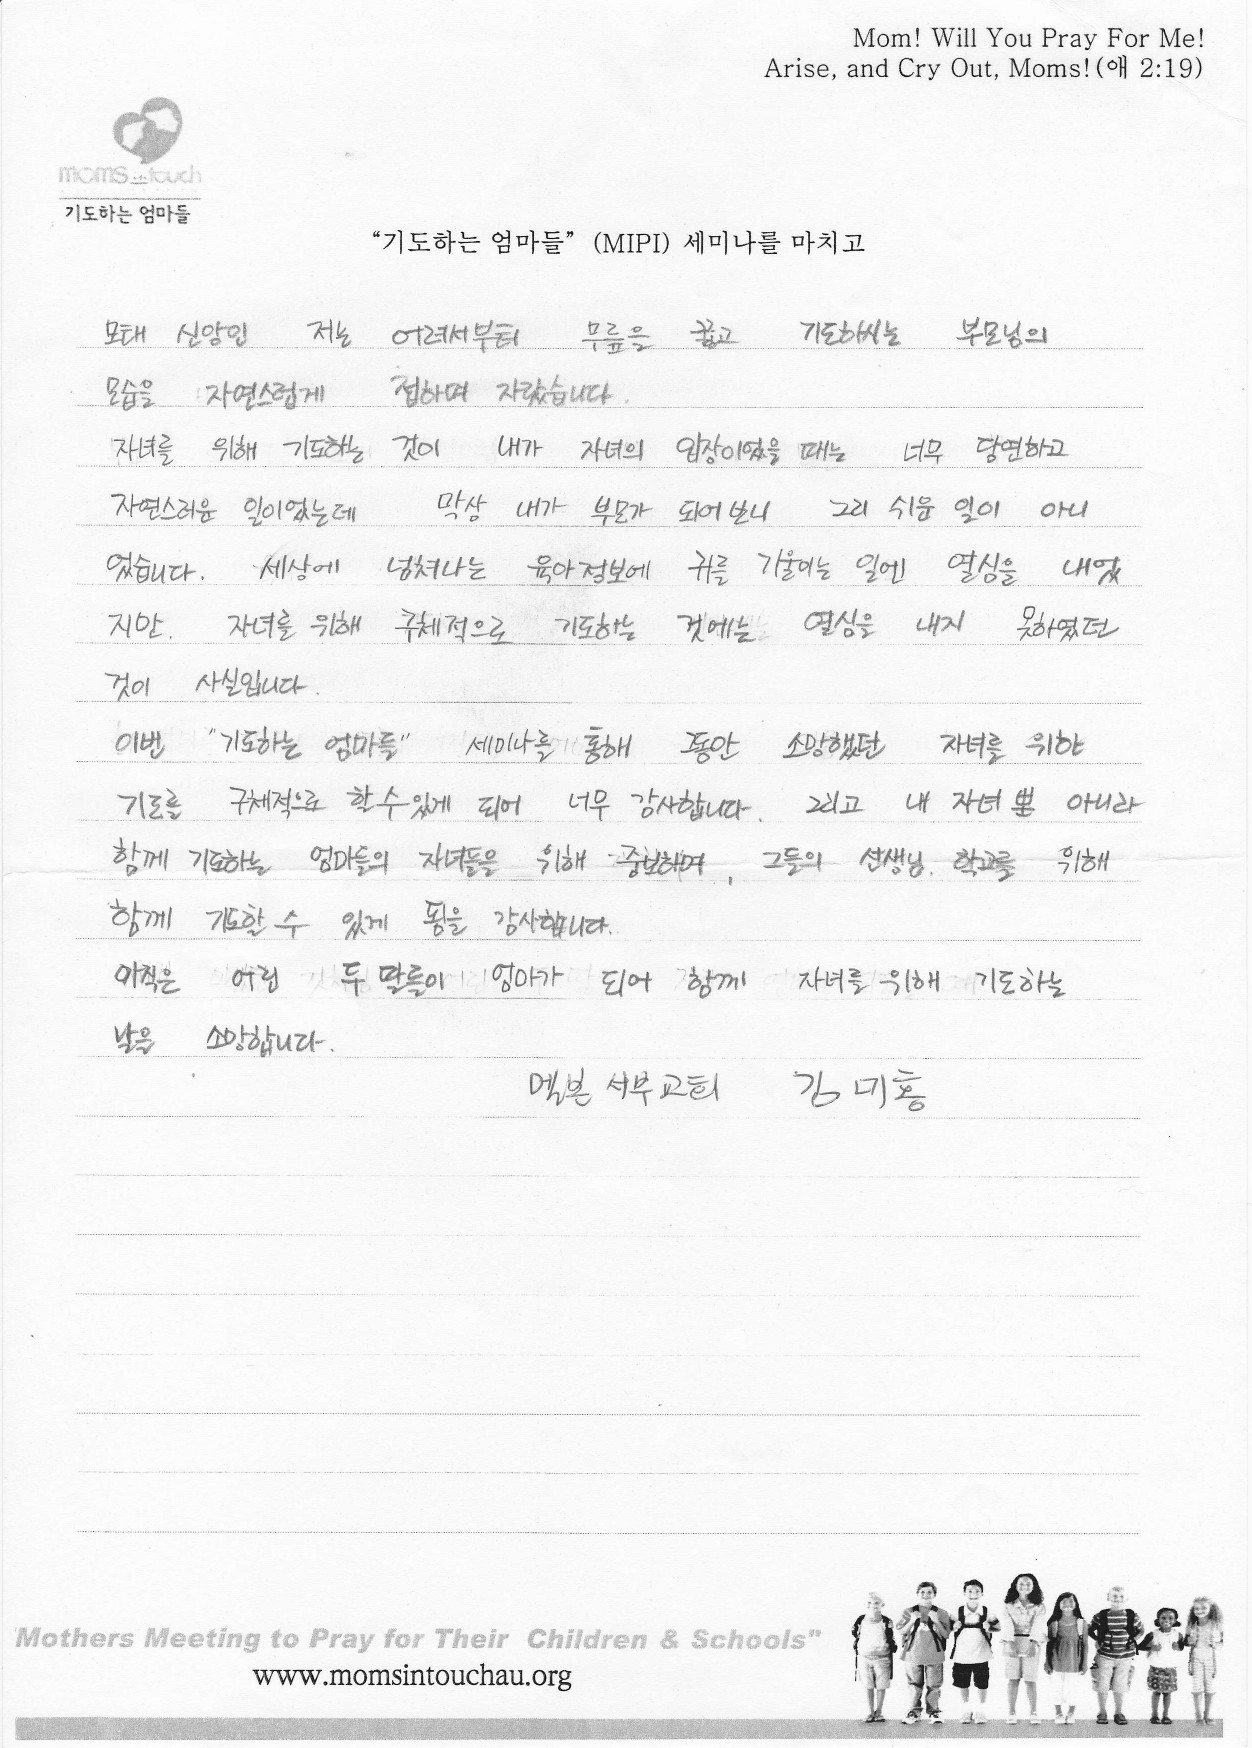 Mom! Will You Pray For Me!
Arise, and Cry Out, Moms!(애 2:19)
moms in touch
기도하는 엄마들
“기도하는 엄마들” (MIPI) 세미나를 마치고
모태 신앙인 저는 어려서부터 무릎을 꿇고 기도하시는 부모님의
모습을 자연스럽게 접하며 자랐습니다.
자녀를 위해 기도하는 것이 내가 자녀의 입장이었을 때는 너무 당연하고
자연스러운 일이었는데 막상 내가 부모가 되어보니 그리 쉬운 일이 아니
었습니다. 세상에 넘쳐나는 육아정보에 귀를 기울이는 일엔 열심을 내었
지만. 자녀를 위해 구체적으로 기도하는 것에는 열심을 내지 못하였던
것이 사실입니다.
이번 "기도하는 엄마들" 세미나를 통해 동안 소망했던 자녀를 위한
기도를 구체적으로 할 수 있게 되어 너무 감사합니다. 그리고 내 자녀 뿐 아니라
함께 기도하는 엄마들의 자녀들을 위해 중보하며, 그들의 선생님. 학교를 위해
함께 기도할 수 있게 됨을 감사합니다.
아직은 어린 두 딸들이 엄마가 되어 함께 자녀를 위해 기도하는
날을 소망합니다.
멜본 서부교회 김미홍
"Mothers Meeting to Pray for Their Children & Schools"
www.momsintouchau.org